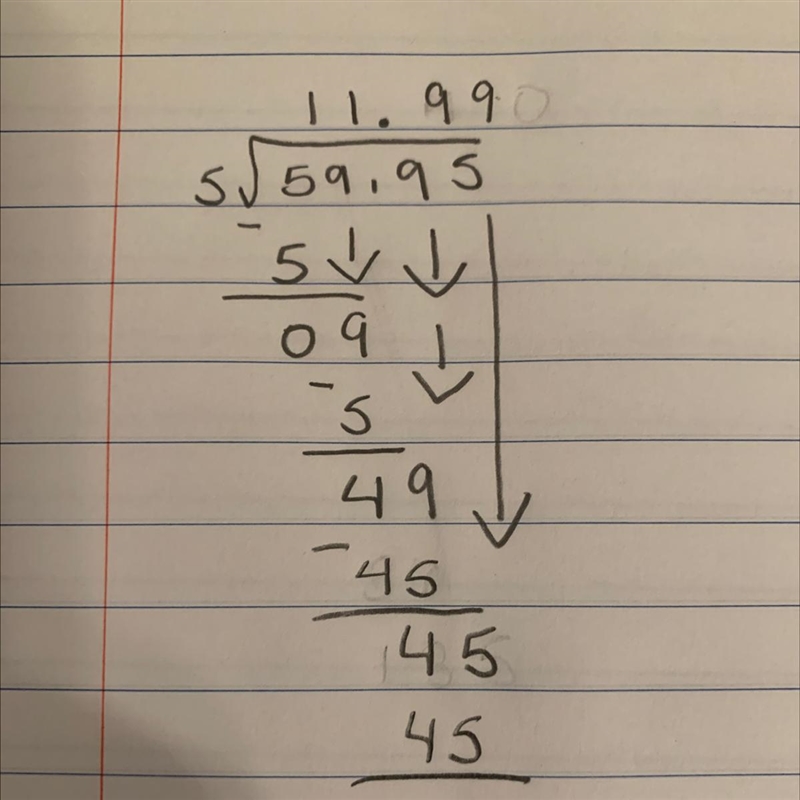 11.99
5√59.95
- 5
09
- 5
49
- 45
45
45